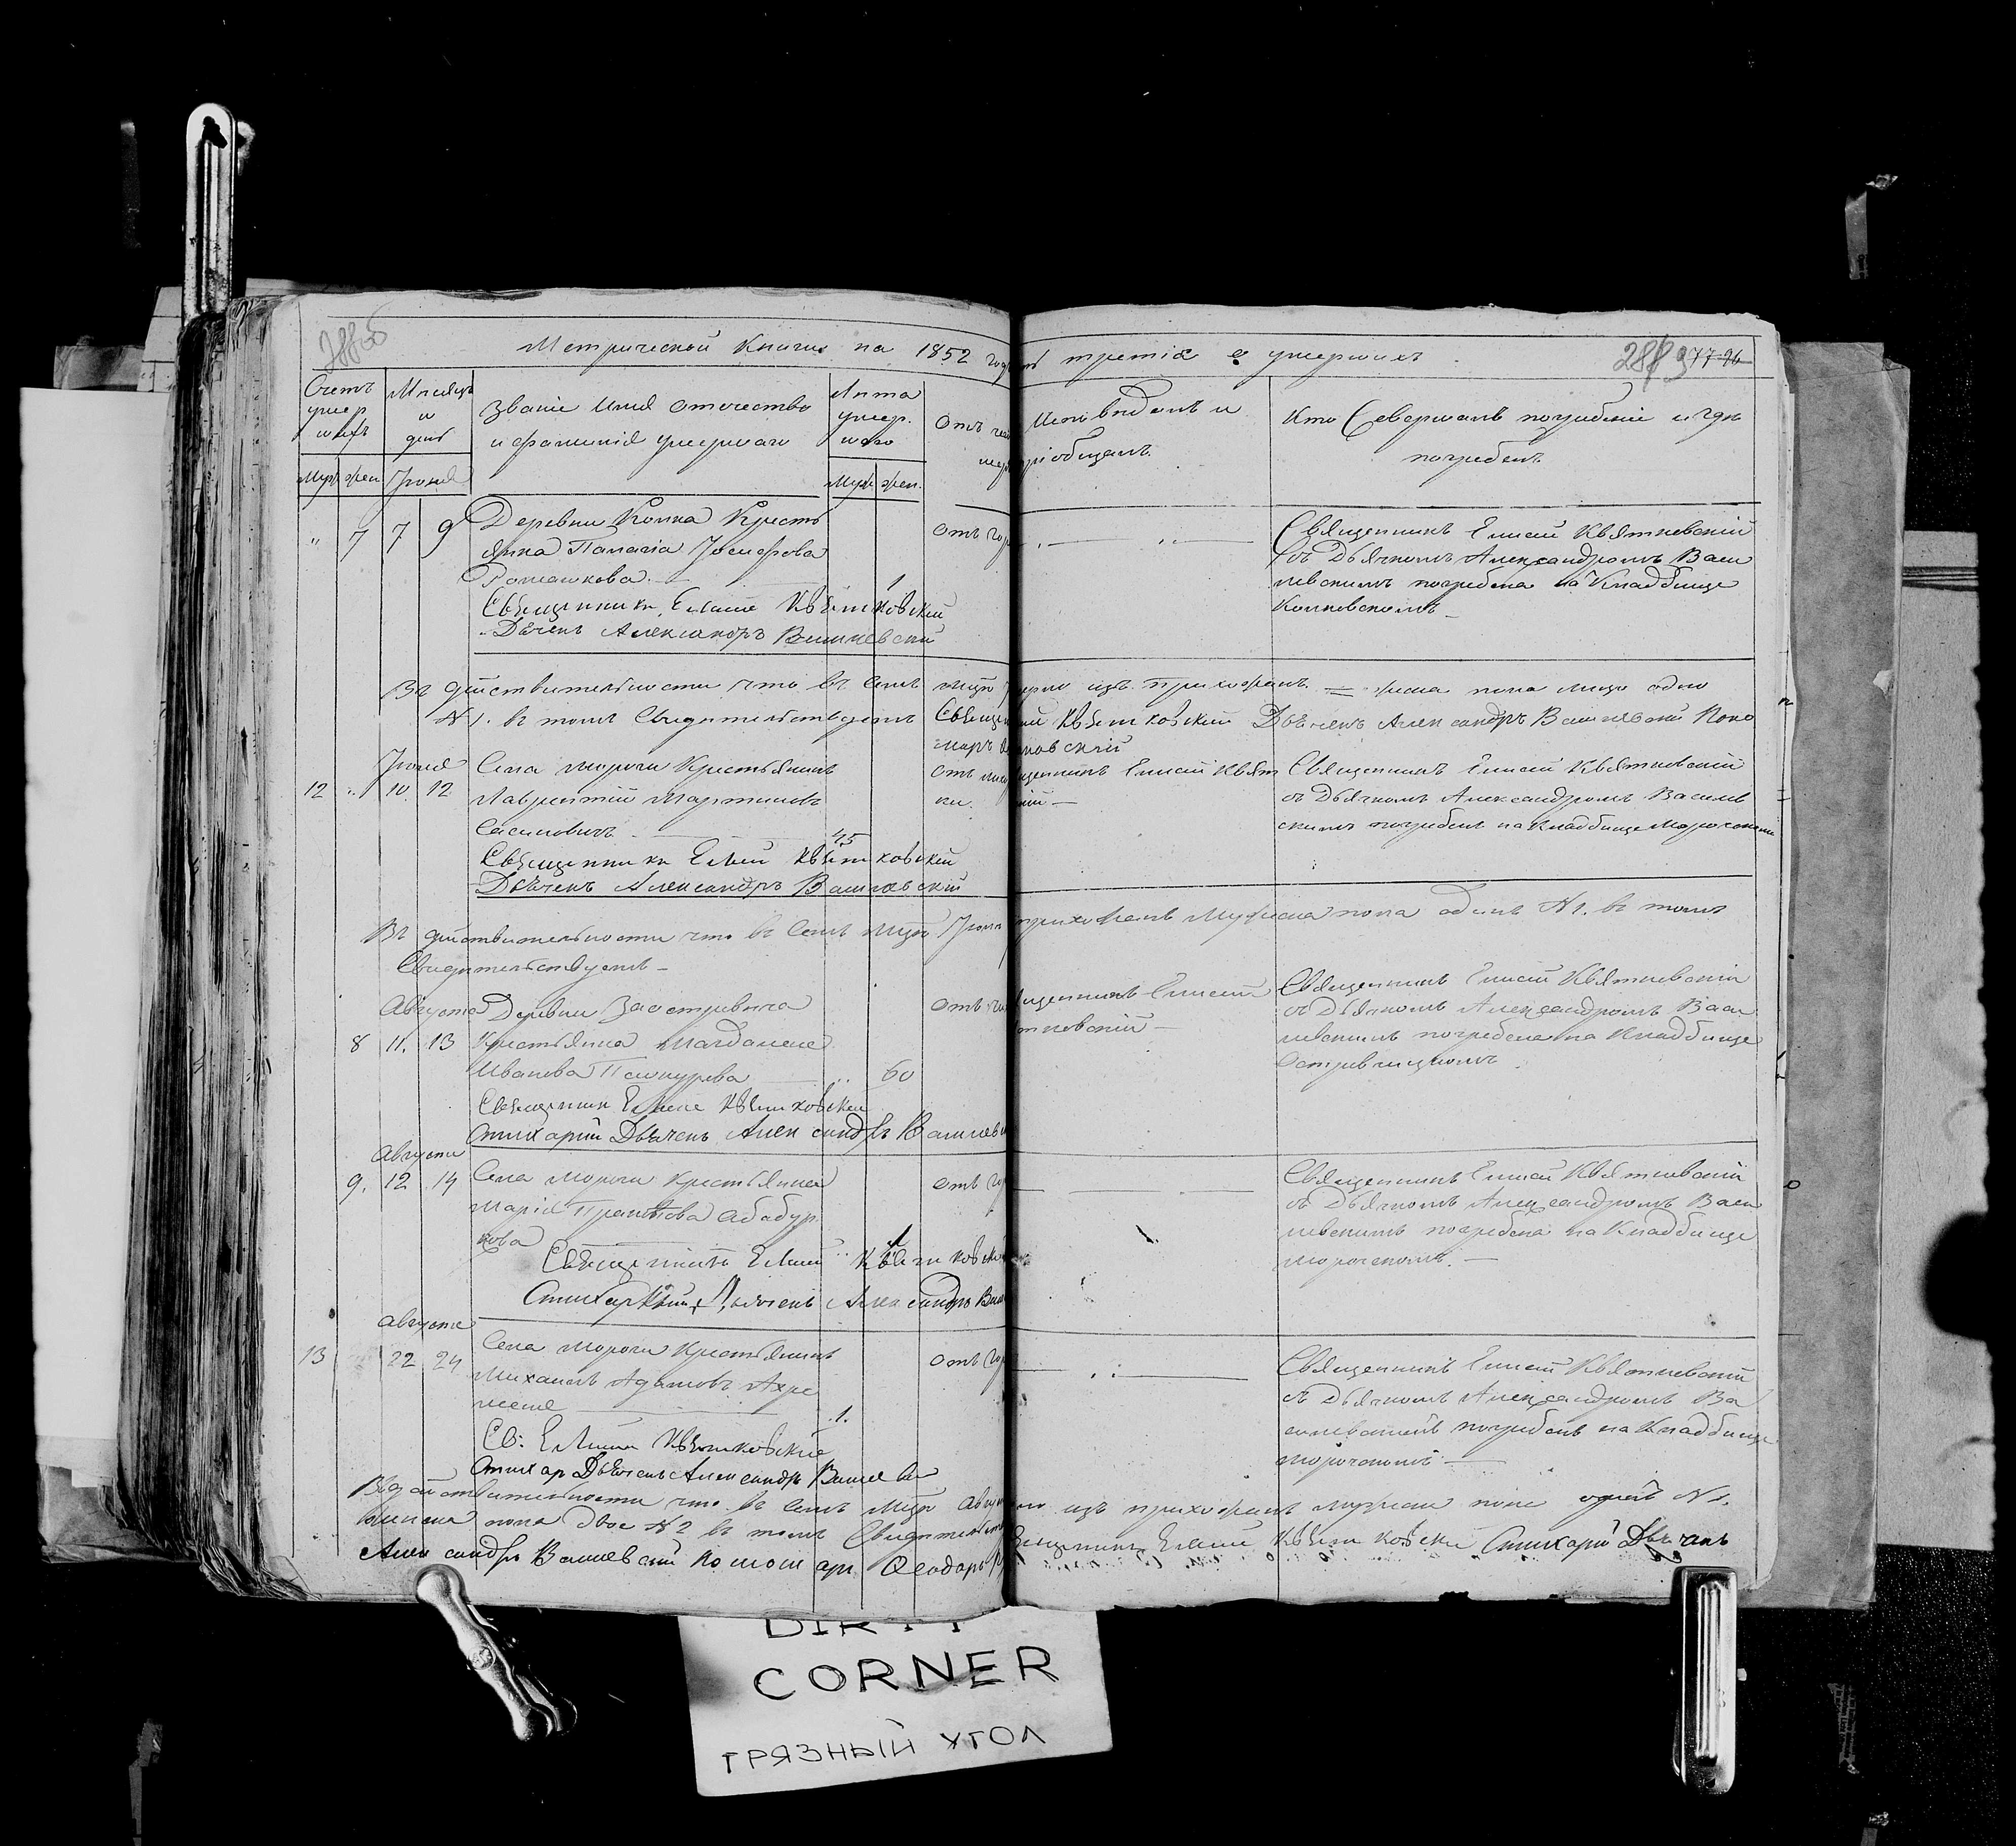 288 об
Метрической Книги на 1852 годъ третія о умершихъ
288 9 77-96
Счетъ умершихъ
Мѣсяцъ и день
Званіе Имя Отечество и фамилія умершаго
Лѣта умершаго
Отъ чего
Исповѣданъ и
пріобщалъ
Кто Совершалъ погребеніе и гдѣ погребенъ
Муж жен Іюня
Муж жен.
" 7 7 9 Деревни Колка Кресть
янка Палагія Іосифова
Ромашкова. 1
Священникъ Елисей Квятковскій
Дьячекъ Александръ Василевскій
Отъ гор
Священникъ Елисей Квятковскій
съ Дьячкомъ Александромъ Васи
левскимъ погребена на Кладбище
Колковскомъ
Въ дѣйствительности что въ семъ мцѣ умерло изъ прихожанъ женска пола лицо одно
№ 1. въ томъ Свидетельствуемъ Священ Квятковскій Дьячекъ Александръ Василевскій Поно
марь
Іюля
12 " 10. 12 Села Морочи Крестьянинъ
Лаврентій Мартиновъ
Сасиновичъ 45
Священникъ Елисей Квятковскій
Дьячекъ Александръ Василевскій
Священникъ Елисей Квят
кій
Священникъ Елисей Квятковскій
съ Дьячкомъ Александромъ Василев
скимъ погребенъ на Кладбище Морочском
Въ дѣйствительности что въ семъ мцѣ прихожанъ Мужеска пола одинъ № 1. въ томъ
Свидетельствуемъ
Августа
8 11. 13 Деревни Заостровеча
Крестьянка Магдалена
Ивановна 60
Священник Елисей Квятковскій
Стихарный Дьячекъ Александръ Василевс
Священникъ Елисей
тковскій
Священникъ Елисей Квятковскій
съ Дьячкомъ Александромъ Васи
левскимъ погребена на Кладбище
Августа
9. 12 14 Села Морочи Крестьянка
Марія
кова 1
Священникъ Елисей Квятковск
Стихарный Дьячекъ Александръ Васи
Отъ гор
Священникъ Елисей Квятковскій
съ Дьячкомъ Александромъ Васи
левскимъ погребена на Кладбище
Морочскомъ.
Августа
13 22 24 Села Морочи Крестьянинъ
Михаилъ Адамовъ Ахре
меня 1.
Св: Елисей Квятковскій
Стихар Дьячекъ Александръ Василев
Отъ гор
Священникъ Елисей Квятковскій
съ Дьячкомъ Александромъ Ва
силевскимъ погребенъ на Кладбище
Морочскомъ
Въ дѣйствительности что въ семъ мцѣ Авгу изъ прихожанъ мужеска пола одинъ № 1.
женска пола двое № 2 въ томъ Свидетельст Священникъ Елисей Квятковскій Стихарй Дьячекъ
Александръ Василевскій Пономарь Феодоръ
DIRTY
CORNER
ГРЯЗНЫЙ УГОЛ